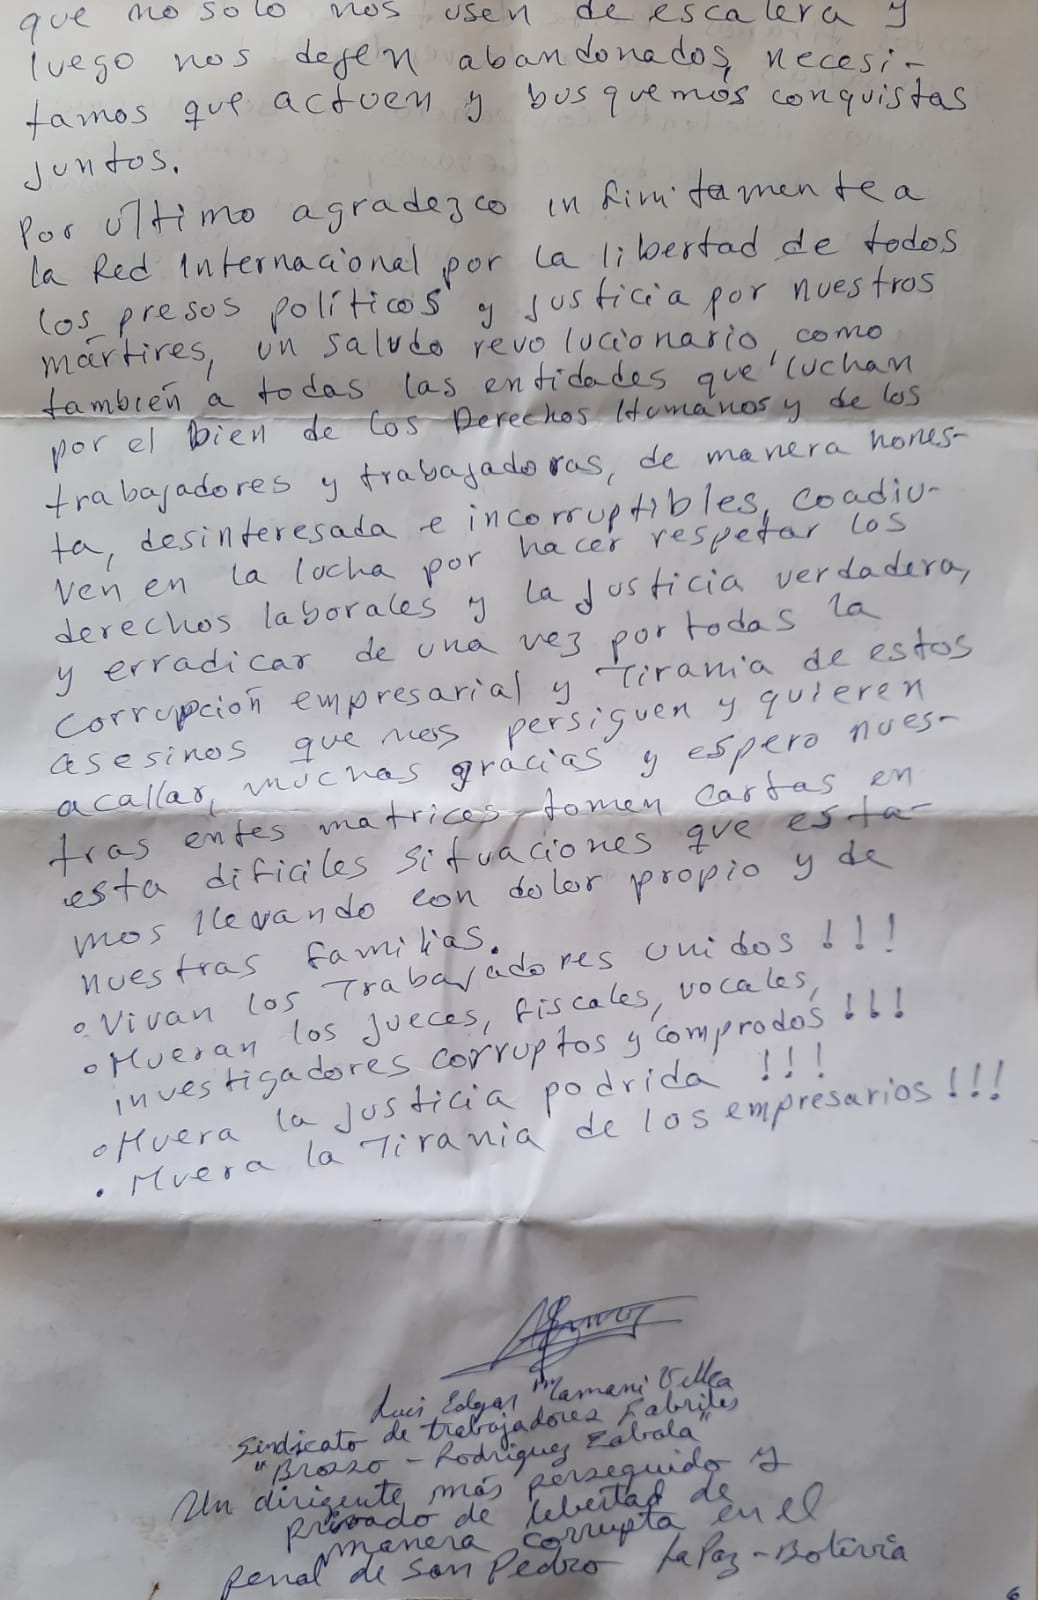 que no solo nos usen de escalera y
luego nos dejen abandonados, necesi-
tamos que actuen y busquemos conquistas
juntos.
Por último agradezco infinitamente a
la Red Internacional por la libertad de todos
los presos políticos y justicia por nuestros
mártires, un saludo revolucionario como
también a todas las entidades que luchan
por el bien de los Derechos Humanos y de los
trabajadores y trabajadoras, de manera hones-
ta, desinteresada e incorruptibles, coadiu-
ven en la lucha por hacer respetar los
derechos laborales y la justicia verdadera,
y erradicar de una vez por todas la
corrupción empresarial y Tirania de estos
asesinos que nos persiguen y quieren
acallar, muchas gracias y espero nues-
tras entes matrices tomen cartas en
esta dificiles situaciones que esta-
mos llevando con dolor propio y de
nuestras familias.
• Vivan los Trabajadores unidos !!!
• Mueran los jueces, fiscales, vocales,
investigadores corruptos y comprados !!!
• Muera la justicia podrida !!!
• Muera la Tirania de los empresarios !!!
Luis Edgar Mamani Villca
Sindicato de trabajadores Fabriles
"Brosso - Rodriguez Zabala"
Un dirigente más perseguido y
privado de libertad de
manera corrupta en el
penal de San Pedro La Paz - Bolivia
6